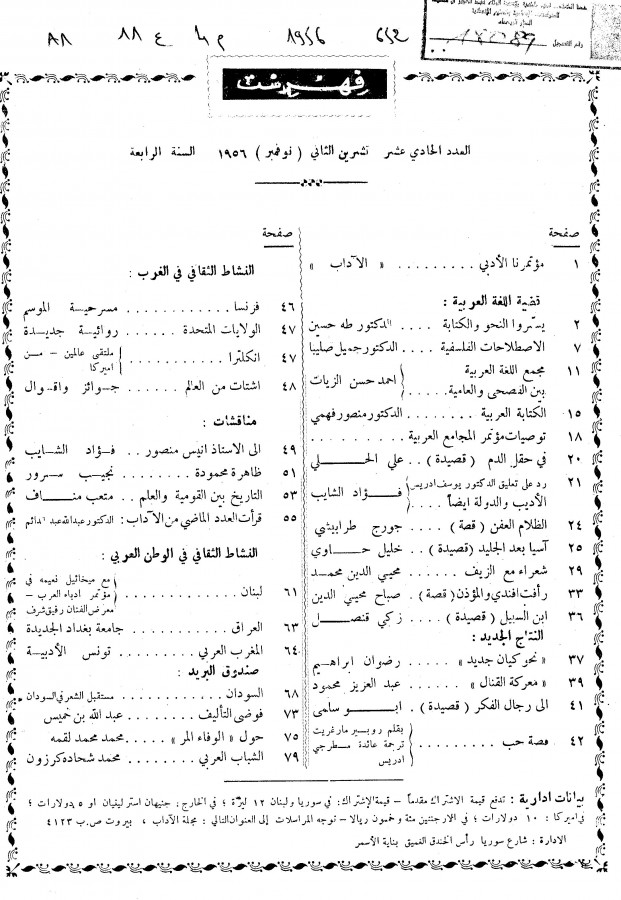 ٨٨ ١١ ع ٤ م 1956 652
رقم التسجيل
فهرست
العدد الحادي عشر تشرين الثاني ( نوفمبر ) ١٩٥٦ السنة الرابعة
صفحة
١ مؤتمرنا الأدبي . . . . . . . . . « الآداب »
قضية اللغة العربية :
٢ يسّروا النحو والكتابة . . . . الدكتور طه حسين
٧ الاصطلاحات الفلسفية . . . . الدكتور جميل صليبا
١١ مجمع اللغة العربية
بين الفصحى والعامية..... احمد حسن الزيات
١٥ الكتابة العربية . . . . . . . الدكتور منصور فهمي
١٨ توصيات مؤتمر المجامع العربية . . . . . . . . .
٢٠ في حقل الدم ( قصيدة ) . . علي الحلي
٢١ رد على تعليق الدكتور يوسف ادريس
الأديب والدولة ايضاً . . . . فؤاد الشايب
٢٤ الظلام العفن ( قصة ) . . . جورج طرابيشي
٢٥ آسيا بعد الجليد ( قصيدة ) . . خليل حاوي
٢٩ شعراء مع الزيف . . . . . . محيي الدين محمد
٣٣ رأفت افندي والمؤذن ( قصة ) . صباح محيي الدين
٣٦ ابن السبيل ( قصيدة ) . . . . زكي قنصل
النتاج الجديد :
٣٧ « نحو كيان جديد » . . . . . رضوان ابراهيم
٣٩ « معركة القنال » . . . . . عبد العزيز محمود
٤١ الى رجال الفكر ( قصيدة ) . ابو سامى
٤٢ قصة حب . . . . . . . . . بقلم روبير مارغريت
ترجمة عائدة مطرجي
ادريس
صفحة
النشاط الثقافي في الغرب :
٤٦ فرنسا . . . . . . . . . . . . مسرحية الموسم
٤٧ الولايات المتحدة . . . . . . روائية جديدة
٤٧ انكلترا . . . . . . . . . . ملتقى عالمين - من
اميركا
٤٨ اشتات من العالم . . . . . . جوائز واقوال
مناقشات :
٤٩ الى الاستاذ انيس منصور . . فؤاد الشايب
٥١ ظاهرة محمودة . . . . . . نجيب سرور
٥٣ التاريخ بين القومية والعلم . . متعب مناف
٥٥ قرأت العدد الماضي من الآداب: الدكتور عبدالله عبد الدائم
النشاط الثقافي في الوطن العربي :
٦١ لبنان . . . . . . . . . . . مع ميخائيل نعيمه في
مؤتمر ادباء العرب -
معرض الفنان رفيق شرف
٦٣ العراق . . . . . . . . . . جامعة بغداد الجديدة
٦٤ المغرب العربي . . . . . . تونس الأدبية
صندوق البريد :
٦٨ السودان . . . . . . . . . مستقبل الشعر في السودان
٧٣ فوضى التأليف . . . . . . عبد الله بن خميس
٧٥ حول « الوفاء المر » . . . . . محمد محمد لقمه
٧٩ الشباب العربي . . . . . . محمد شحاده كرزون
بيانات ادارية : تدفع قيمة الاشتراك مقدماً - قيمة الاشتراك: في سوريا ولبنان ١٢ ليرة ؛ في الخارج : جنيهان استرلينيان او ٥ دولارات ؛
في اميركا : ١٠ دولارات ؛ في الارجنتين مئة وخمسون ريالا - توجه المراسلات إلى العنوان التالي : مجلة الآداب ، بيروت ص.ب ٤١٢٣
الادارة : شارع سوريا رأس الخندق الغميق بناية الأسمر